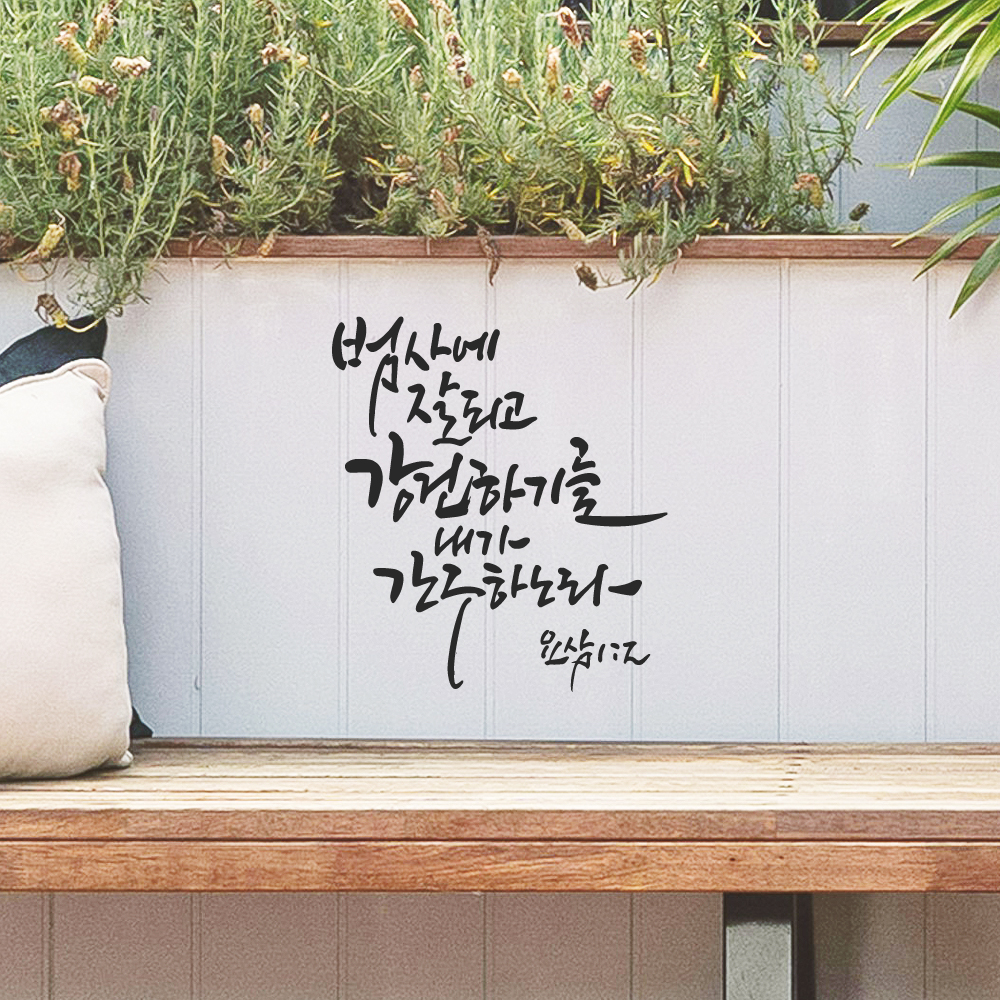 범사에
잘되고
강건하기를
내가
간구하노라
요삼1:2